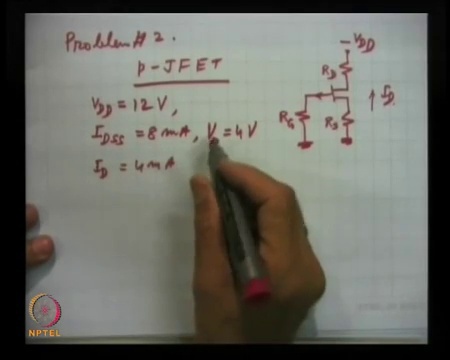 Problem # 2.
p-JFET
V_DD = 12 V,
I_DSS = 8 mA, V_p = 4 V
I_D = 4 mA
-V_DD
R_D
I_D
R_G
R_S
NPTEL